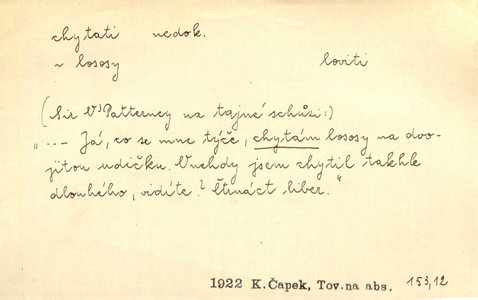 chytati nedok.
~ lososy loviti
(Sir W Patterney na tajné schůzi:)
"... Já, co se mne týče, chytám lososy na dvo-
jitou udičku. Onehdy jsem chytil takhle
dlouhého, vidíte? Čtrnáct liber."
1922 K.Čapek, Tov.na abs. 153,12